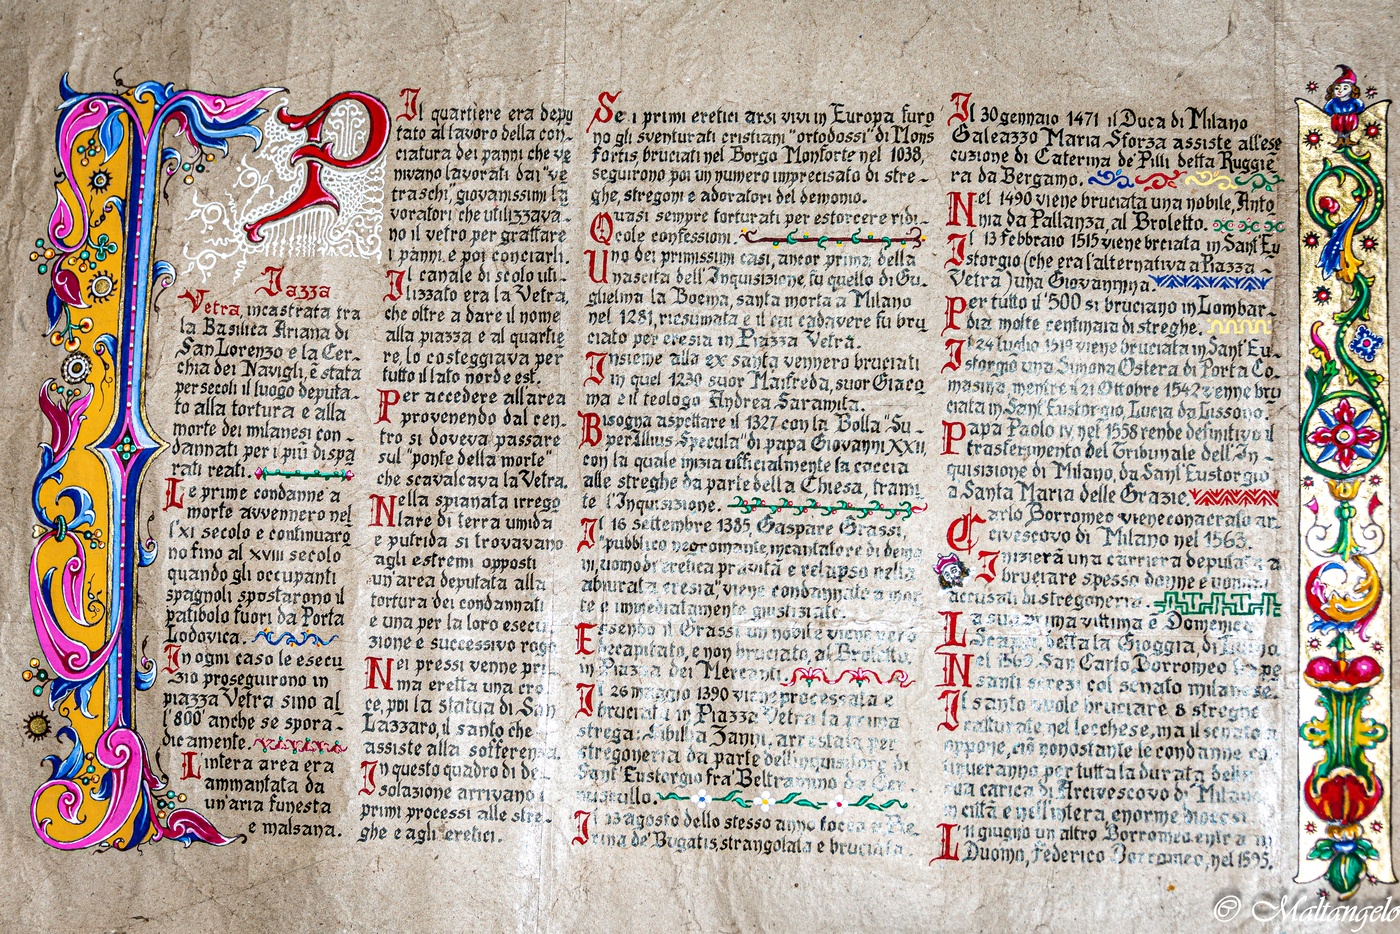 P
Jazza
Vetra, incastrata tra
la Basilica Ariana di
San Lorenzo e la Cer-
chia dei Navigli, è stata
per secoli il luogo deputa-
to alla tortura e alla
morte dei milanesi con-
dannati per i più dispa
rati reati.
Le prime condanne a
morte avvennero nel
l'XI secolo e continuaro
no fino al XVIII secolo
quando gli occupanti
spagnoli spostarono il
patibolo fuori da Porta
Lodovica.
In ogni caso le esecu
zio proseguirono in
piazza Vetra sino al
l'800 anche se spora-
dicamente.
L'intera area era
ammantata da
un'aria funesta
e malsana.
Il quartiere era depu
tato al lavoro della con-
ciatura dei panni che ve
nivano lavorati dai "ve
traschi", giovanissimi la
voratori che utilizzava-
no il vetro per graffare
i panni e poi conciarli.
Il canale di scolo uti-
lizzato era la Vetra,
che oltre a dare il nome
alla piazza e al quartie
re, lo costeggiava per
tutto il lato nord est.
Per accedere all'area
provenendo dal cen-
tro si doveva passare
sul "ponte della morte"
che scavalcava la Vetra.
Nella spianata irrego
lare di terra umida
e putrida si trovavano
agli estremi opposti
un'area deputata alla
tortura dei condannati
e una per la loro esecu
zione e successivo rogo.
Nei pressi venne pri-
ma eretta una cro
ce, poi la statua di San
Lazzaro, il santo che
assiste alla sofferenza.
In questo quadro di de-
solazione arrivano i
primi processi alle stre-
ghe e agli eretici.
Se i primi eretici arsi vivi in Europa furo
no gli sventurati cristiani "ortodossi" di Mons
fortis, bruciati nel Borgo Monforte nel 1038,
seguirono poi un numero imprecisato di stre-
ghe, stregoni e adoratori del demonio.
Quasi sempre torturati per estorcere ridi-
cole confessioni.
Uno dei primissimi casi, ancor prima della
nascita dell'Inquisizione fu quello di Gu-
glielma la Boema, santa morta a Milano
nel 1281, riesumata e il cui cadavere fu bru
ciato per eresia in Piazza Vetra.
Insieme alla ex santa vennero bruciati
in quel 1230 suor Maifreda, suor Giaco
ma e il teologo Andrea Saramita.
Bisogna aspettare il 1327 con la Bolla "Su-
per Illius Specula" di papa Giovanni XXII,
con la quale inizia ufficialmente la caccia
alle streghe da parte della Chiesa, trami
te l'Inquisizione.
Il 16 settembre 1385, Gaspare Grassi,
"pubblico negromante, incantatore di demo
ni, uomo di eretica pravità e relapso nella
abiurata eresia" viene condannato a mor
te e immediatamente giustiziato.
Essendo il Grassi un nobile viene però
decapitato, e non bruciato, al Broletto,
in Piazza dei Mercanti.
Il 26 maggio 1390 viene processata e
bruciata in Piazza Vetra la prima
strega: Sibillia Zanni, arrestata per
stregoneria da parte dell'inquisitore di
Sant'Eustorgio fra' Beltramino da Cer-
nuscullo.
Il 13 agosto dello stesso anno tocca a Pie
rina de' Bugatis, strangolata e bruciata.
Il 30 gennaio 1471 il Duca di Milano
Galeazzo Maria Sforza assiste all'ese
cuzione di Caterina de' Pilli detta Ruggie
ra da Bergamo.
Nel 1490 viene bruciata una nobile, Anto
nia da Pallanza, al Broletto.
Il 13 febbraio 1515 viene brciata in Sant'Eu
storgio (che era l'alternativa a Piazza
Vetra) una Giovannina
Per tutto il '500 si bruciano in Lombar-
dia molte centinaia di streghe.
Il 24 luglio 1519 viene bruciata in Sant'Eu-
storgio una Simona Ostera di Porta Co-
masina, mentre il 21 Ottobre 1542 venne bru
ciata in Sant'Eustorgio, Lucia da Lissono.
Papa Paolo IV, nel 1558 rende definitivo il
trasferimento del Tribunale dell'In-
quisizione di Milano, da Sant'Eustorgio
a Santa Maria delle Grazie.
Carlo Borromeo viene conacrato ar-
civescovo di Milano nel 1563.
Inizierà una carriera deputata a
bruciare spesso donne e uomini
accusati di stregoneria.
La sua prima vittima è Domenica
Scapa, detta la Gioggia, di
Nel 1569 San Carlo Borromeo
santi screzi col senato milanese.
Il santo vuole bruciare 8 streghe
catturate nel lecchese, ma il senato
oppone, ciò nonostante le condanne
per tutta la durata della
sua carica di Arcivescovo di Milano,
in città e nell'intera, enorme diocesi.
L'11 giugno un altro Borromeo entra in
Duomo, Federico Borromeo, nel 1595.
© Maltangelo